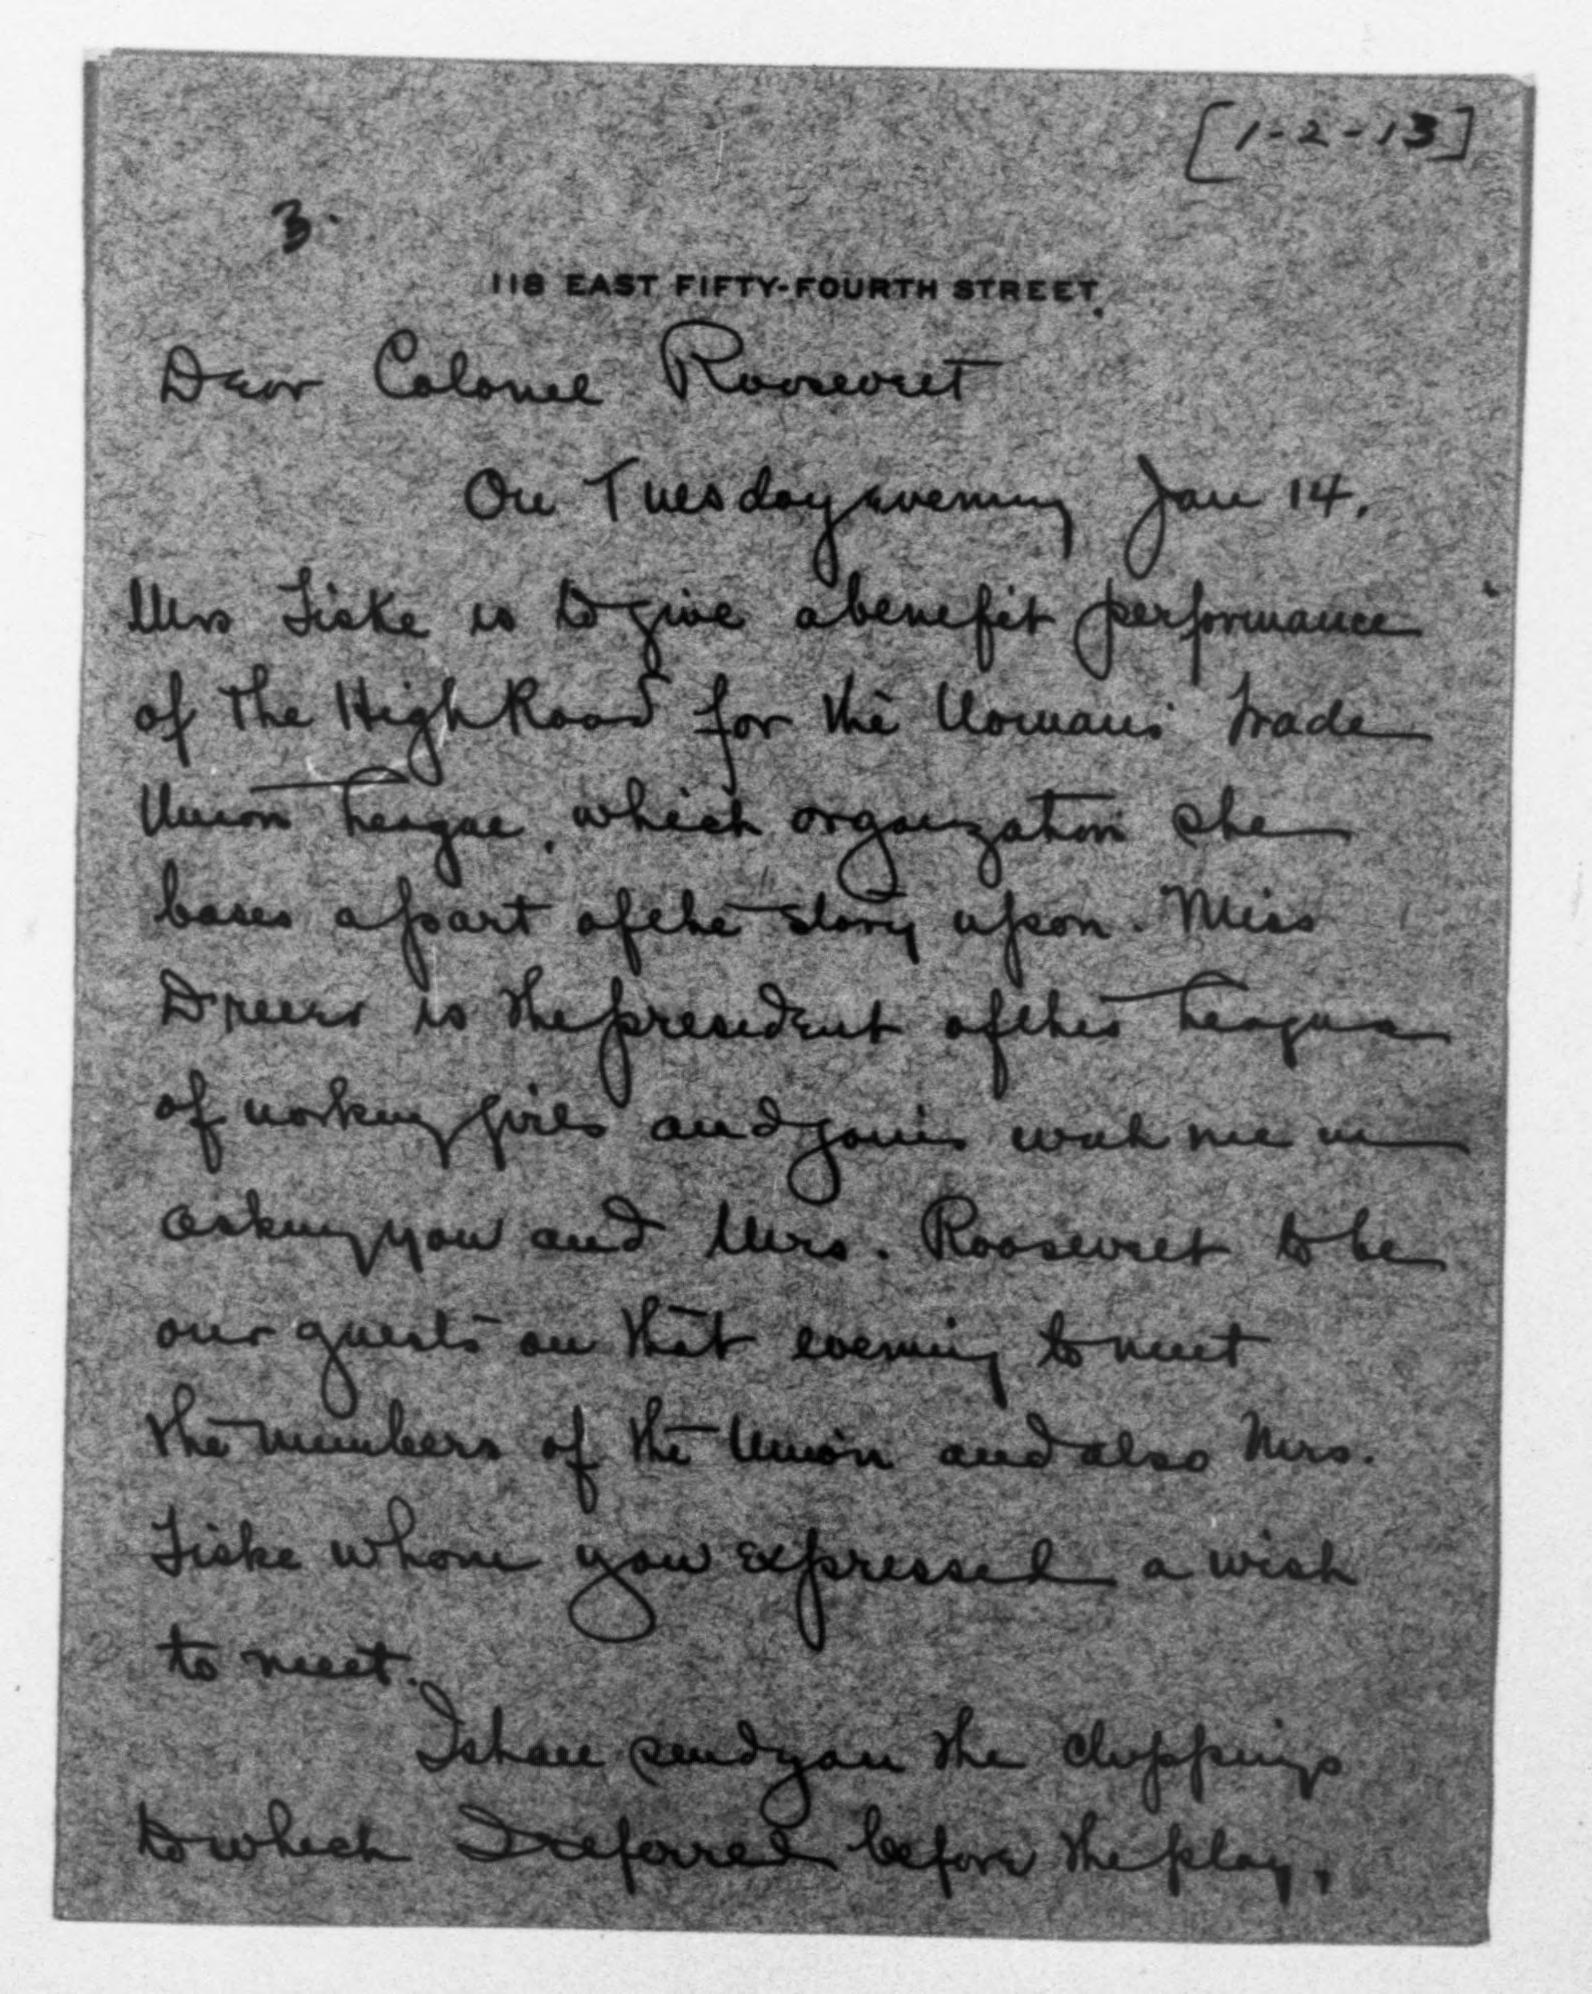 [1-2-13]
3.
118 EAST FIFTY-FOURTH STREET.
Dear Colonel Roosevelt
On Tuesday evening Jan 14.
Mrs Fiske is to give a benefit performance
of The High Road for the Womans' Trade
Union League, which organization she
bases a part of the story upon. Miss
Dreier is the president of this League
of working girls and joins with me in
asking you and Mrs. Roosevelt to be
our guests on that evening to meet
the members of the Union and also Mrs.
Fiske whom you expressed a wish
to meet.
I shall send you the clippings
to which I referred before the play.